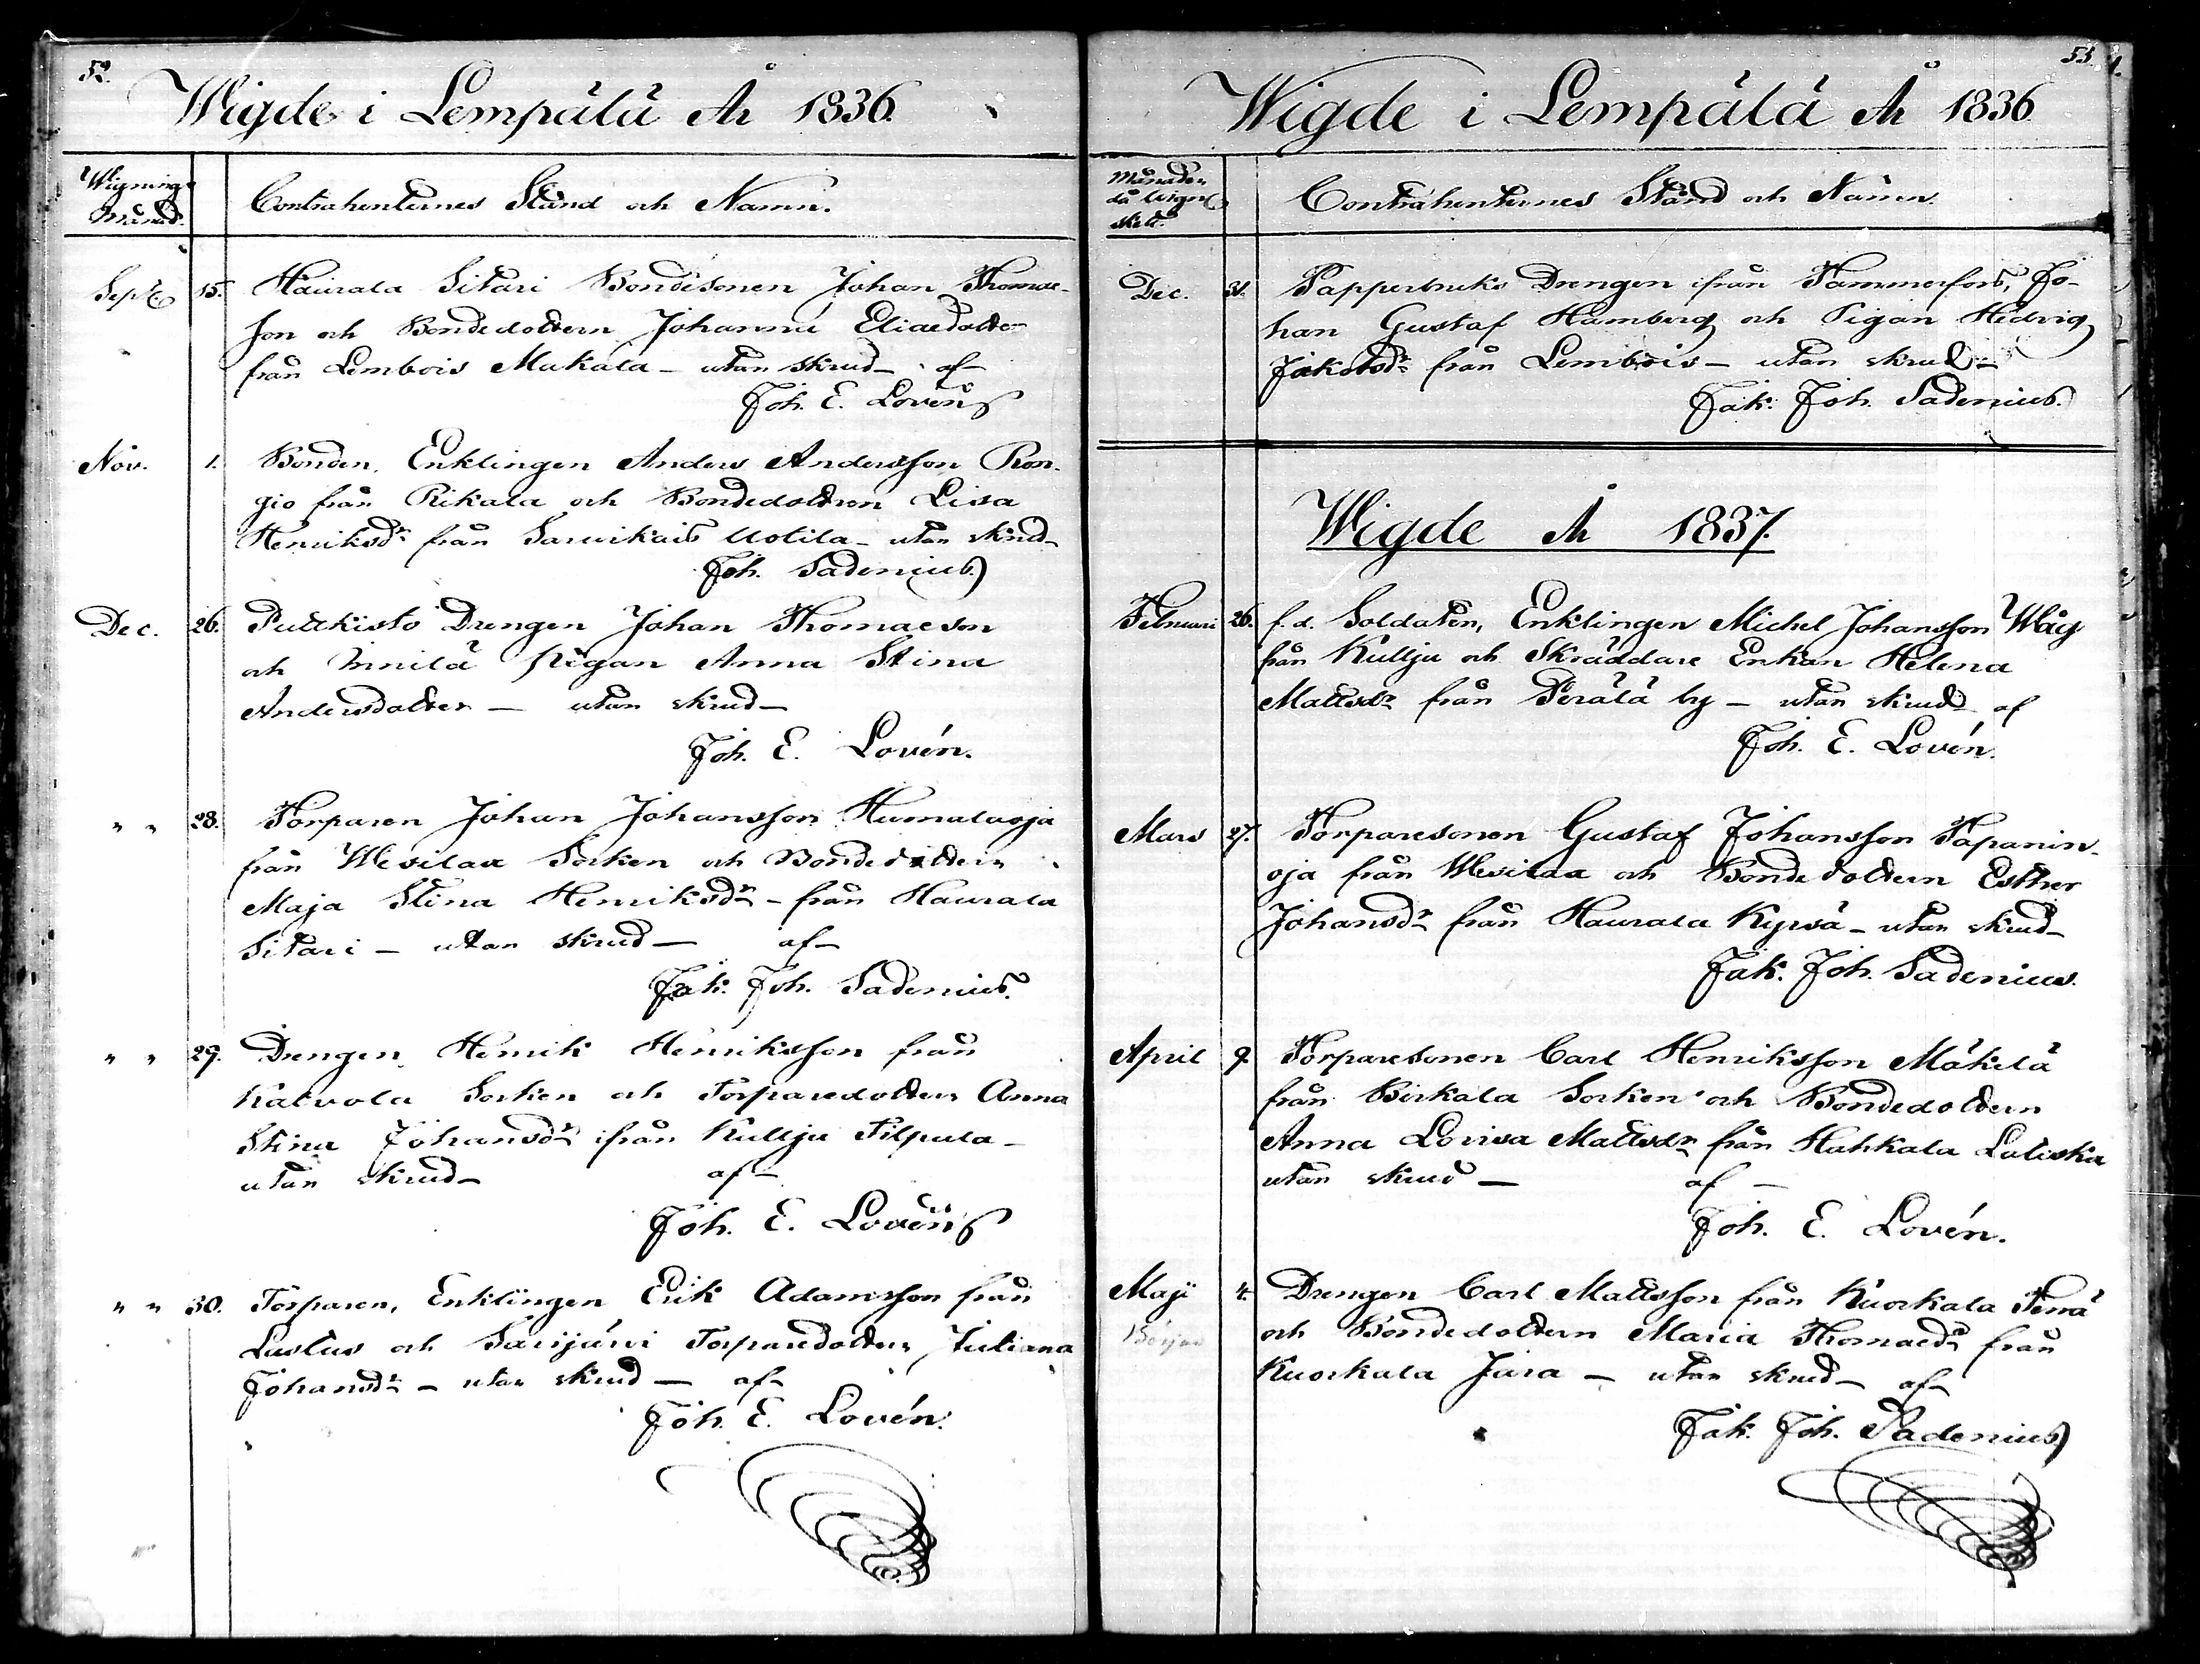 52.
Wigde i Lempälä År 1836.
Wignings
Månad.
Contrahenternes Stånd och Namn.
Sept. 15. Haurala Sitari Bondesonen Johan Thomas-
son och Bondedottern Johanna Eliaedotter
från Lembois Mukala – utan skrud – af –
Joh. E. Lovén
Nov. 1. Bonden, Enklingen Anders Andersson Ron-
gio från Rikala och Bondedottren Lisa
Henriksdr från Sarvikais Uotila – utan skrud –
Joh. Sadenius
Dec. 26. Pulckisto Drengen Johan Thomaeson
och Innilä Pigan Anna Stina
Andersdotter – utan skrud –
Joh. E. Lovén.
" " 28. Torparen Johan Johansson Humalaoja
från Wesilax Socken och Bondedottern
Maja Stina Henriksdr – från Haurala
Sitari – utan skrud – af –
Jak. Joh. Sadenius.
" " 29. Drengen, Henrik Henriksson från
Kalvola Socken och Torparedottern Anna
Stina Johansdr ifrån Kullju Tilpula –
utan skrud – af –
Joh. E. Lovén
" " 30. Torparen, Enklingen Erik Adamsson från
Lastus och Sarijärvi Torparedottern Juliana
Johansdr – utan skrud – af –
Joh. E. Lovén.
53.
Wigde i Lempälä År 1836
Månaden
då Wign.
skett.
Contrahenternes Stånd och Namn.
Dec. 31. Papperbruks Drengen ifrån Tammerfors, Jo-
han Gustaf Hamberg och Pigan Hedvig
Jakobsdr från Lembois – utan skrud –
Jak. Joh. Sadenius.
Wigde År 1837.
Februari 26. f.d. Soldaten, Enklingen Michel Johansson Wåg
från Kullju och Skräddare Enkan Helena
Mattsdr från Perälä by – utan skrud – af
Joh. E. Lovén.
Mars 27. Torparesonen Gustaf Johansson Tapanin-
oja från Wesilax och Bondedottern Esther
Johansdr från Haurala Kyrsä – utan skrud –
Jak. Joh. Sadenius.
April 9. Torparesonen Carl Henriksson Mäkelä
från Birkala Socken och Bondedottern
Anna Lovisa Mattsdr från Hahkala Laliska
utan skrud – af –
Joh. E. Lovén.
Maji 4. Drengen Carl Mattsson från Kuokkala
och Bondedottern Maria Thomaedr från
Kuokkala Jara – utan skrud – af –
Jak. Joh. Sadenius